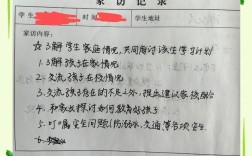 家 访 记 录
学 生
学生地址
家访内容:
☆了解学生家庭情况,共同商讨该生学习计划
1.了解孩子在家情况
2.交流孩子在校情况
3.交流孩子存在的不足之处,提出建议家校结合
4.和家长探讨如何教育好孩子
5.叮嘱学生问题(防溺水、交通等各项安全
6.